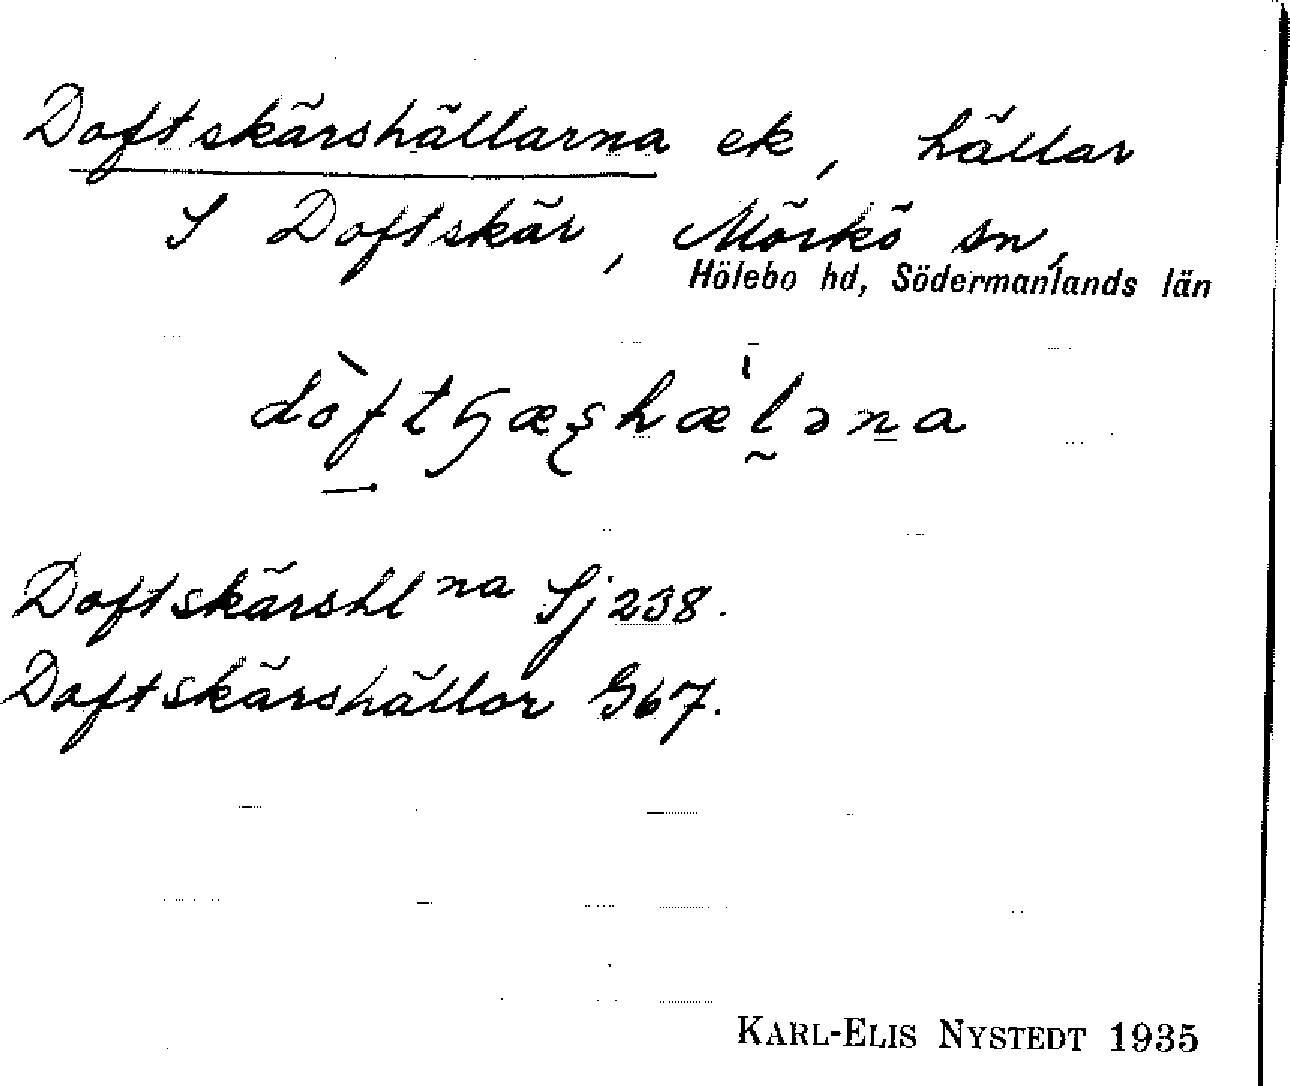 Doftskärshällarna ek, hällar
S Doftskär, Mörkö sn,
Hölebo hd, Södermanlands län
dòftꞕæʂhæ̀l̰əna
Doftskärshl na Sj 238.
Doftskärshällor G67.
KARL-ELIS NYSTEDT 1935